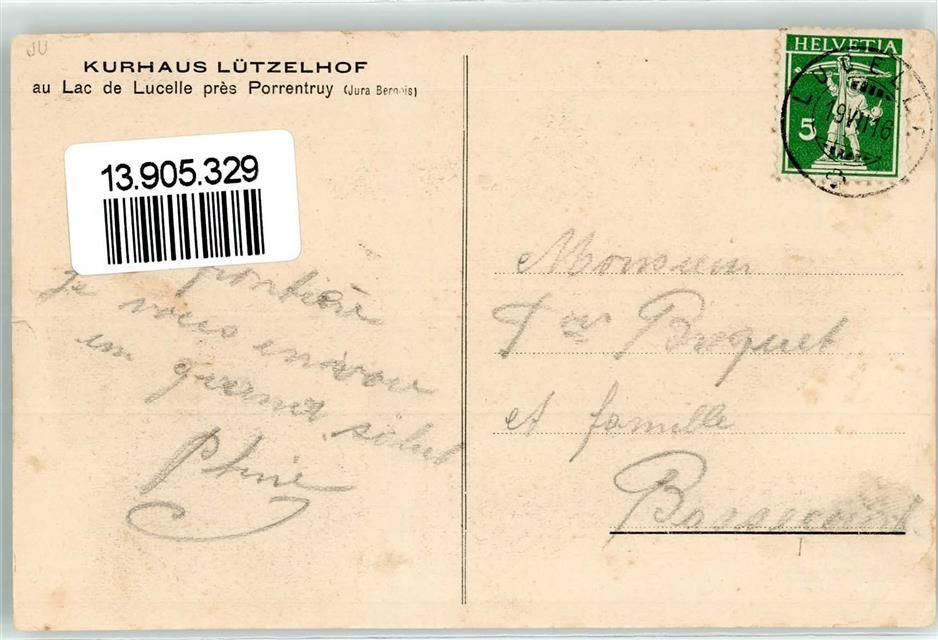 JU
KURHAUS LÜTZELHOF
au Lac de Lucelle près Porrentruy (Jura Bernois)
13.905.329
HELVETIA
5
LUCELLE
19 VII 16
frontière
je vous envoie
un grand salut
Monsieur
Boquet
et famille